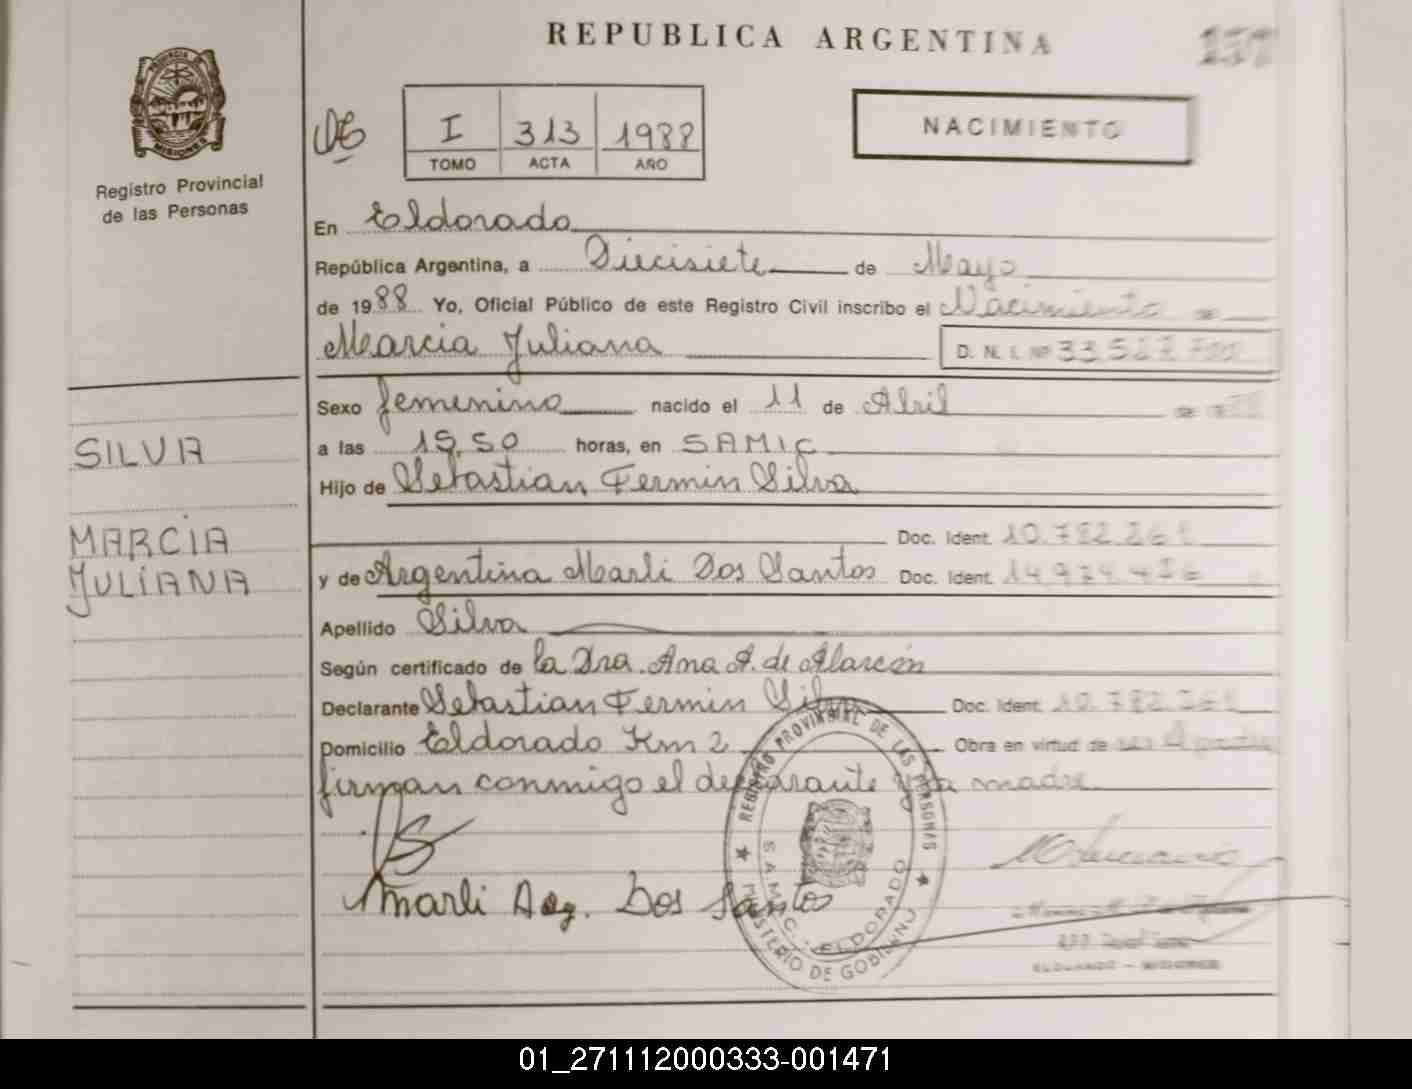 REPUBLICA ARGENTINA
137
PROVINCIA DE MISIONES
Registro Provincial
de las Personas
I 313 1988
TOMO ACTA AÑO
NACIMIENTO
En Eldorado
República Argentina, a Diecisiete de Mayo
de 1988 Yo, Oficial Público de este Registro Civil inscribo el Nacimiento de
Marcia Juliana D. N. I. Nº
Sexo femenino nacido el 11 de Abril de
SILVA
a las 19,50 horas, en SAMIC
Hijo de Sebastian Fermin Silva
MARCIA
JULIANA
Doc. Ident. 10.782.261
y de Argentina Marli Dos Santos Doc. Ident.
Apellido Silva
Según certificado de la Dra. Ana A. de Alarcón
Declarante Sebastian Fermin Silva Doc. Ident. 10.782.261
Domicilio Eldorado Km 2 Obra en virtud de
firman conmigo el declarante y la madre.
Marli Arg. Dos Santos
REGISTRO PROVINCIAL DE LAS PERSONAS
S.A.M.I.C. - ELDORADO
MINISTERIO DE GOBIERNO
ELDORADO - MISIONES
01_271112000333-001471